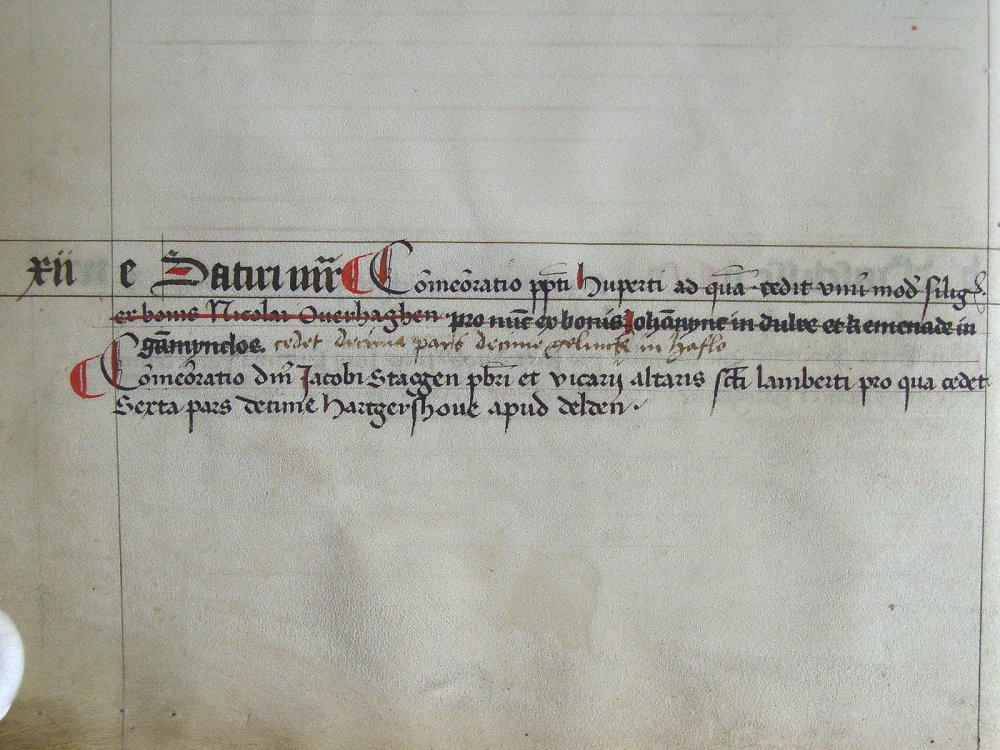 xii e Satiri mr̄is Cōmeōratio pp̄ti Huperti ad quā cedit vnū mod siligͥ
ex bonis Nicolai Ouerhaghen pro nūc ex bonis Johānync in dulre et kemenade in
Gāmyncloe. cedet decima pars decime gelinck in haslo
Cōmeōratio dn̄i Jacobi Staggen pb̄ri et vicarij altaris sc̄ti lamberti pro qua cedet
Sexta pars decime hartgershoue apud delden.